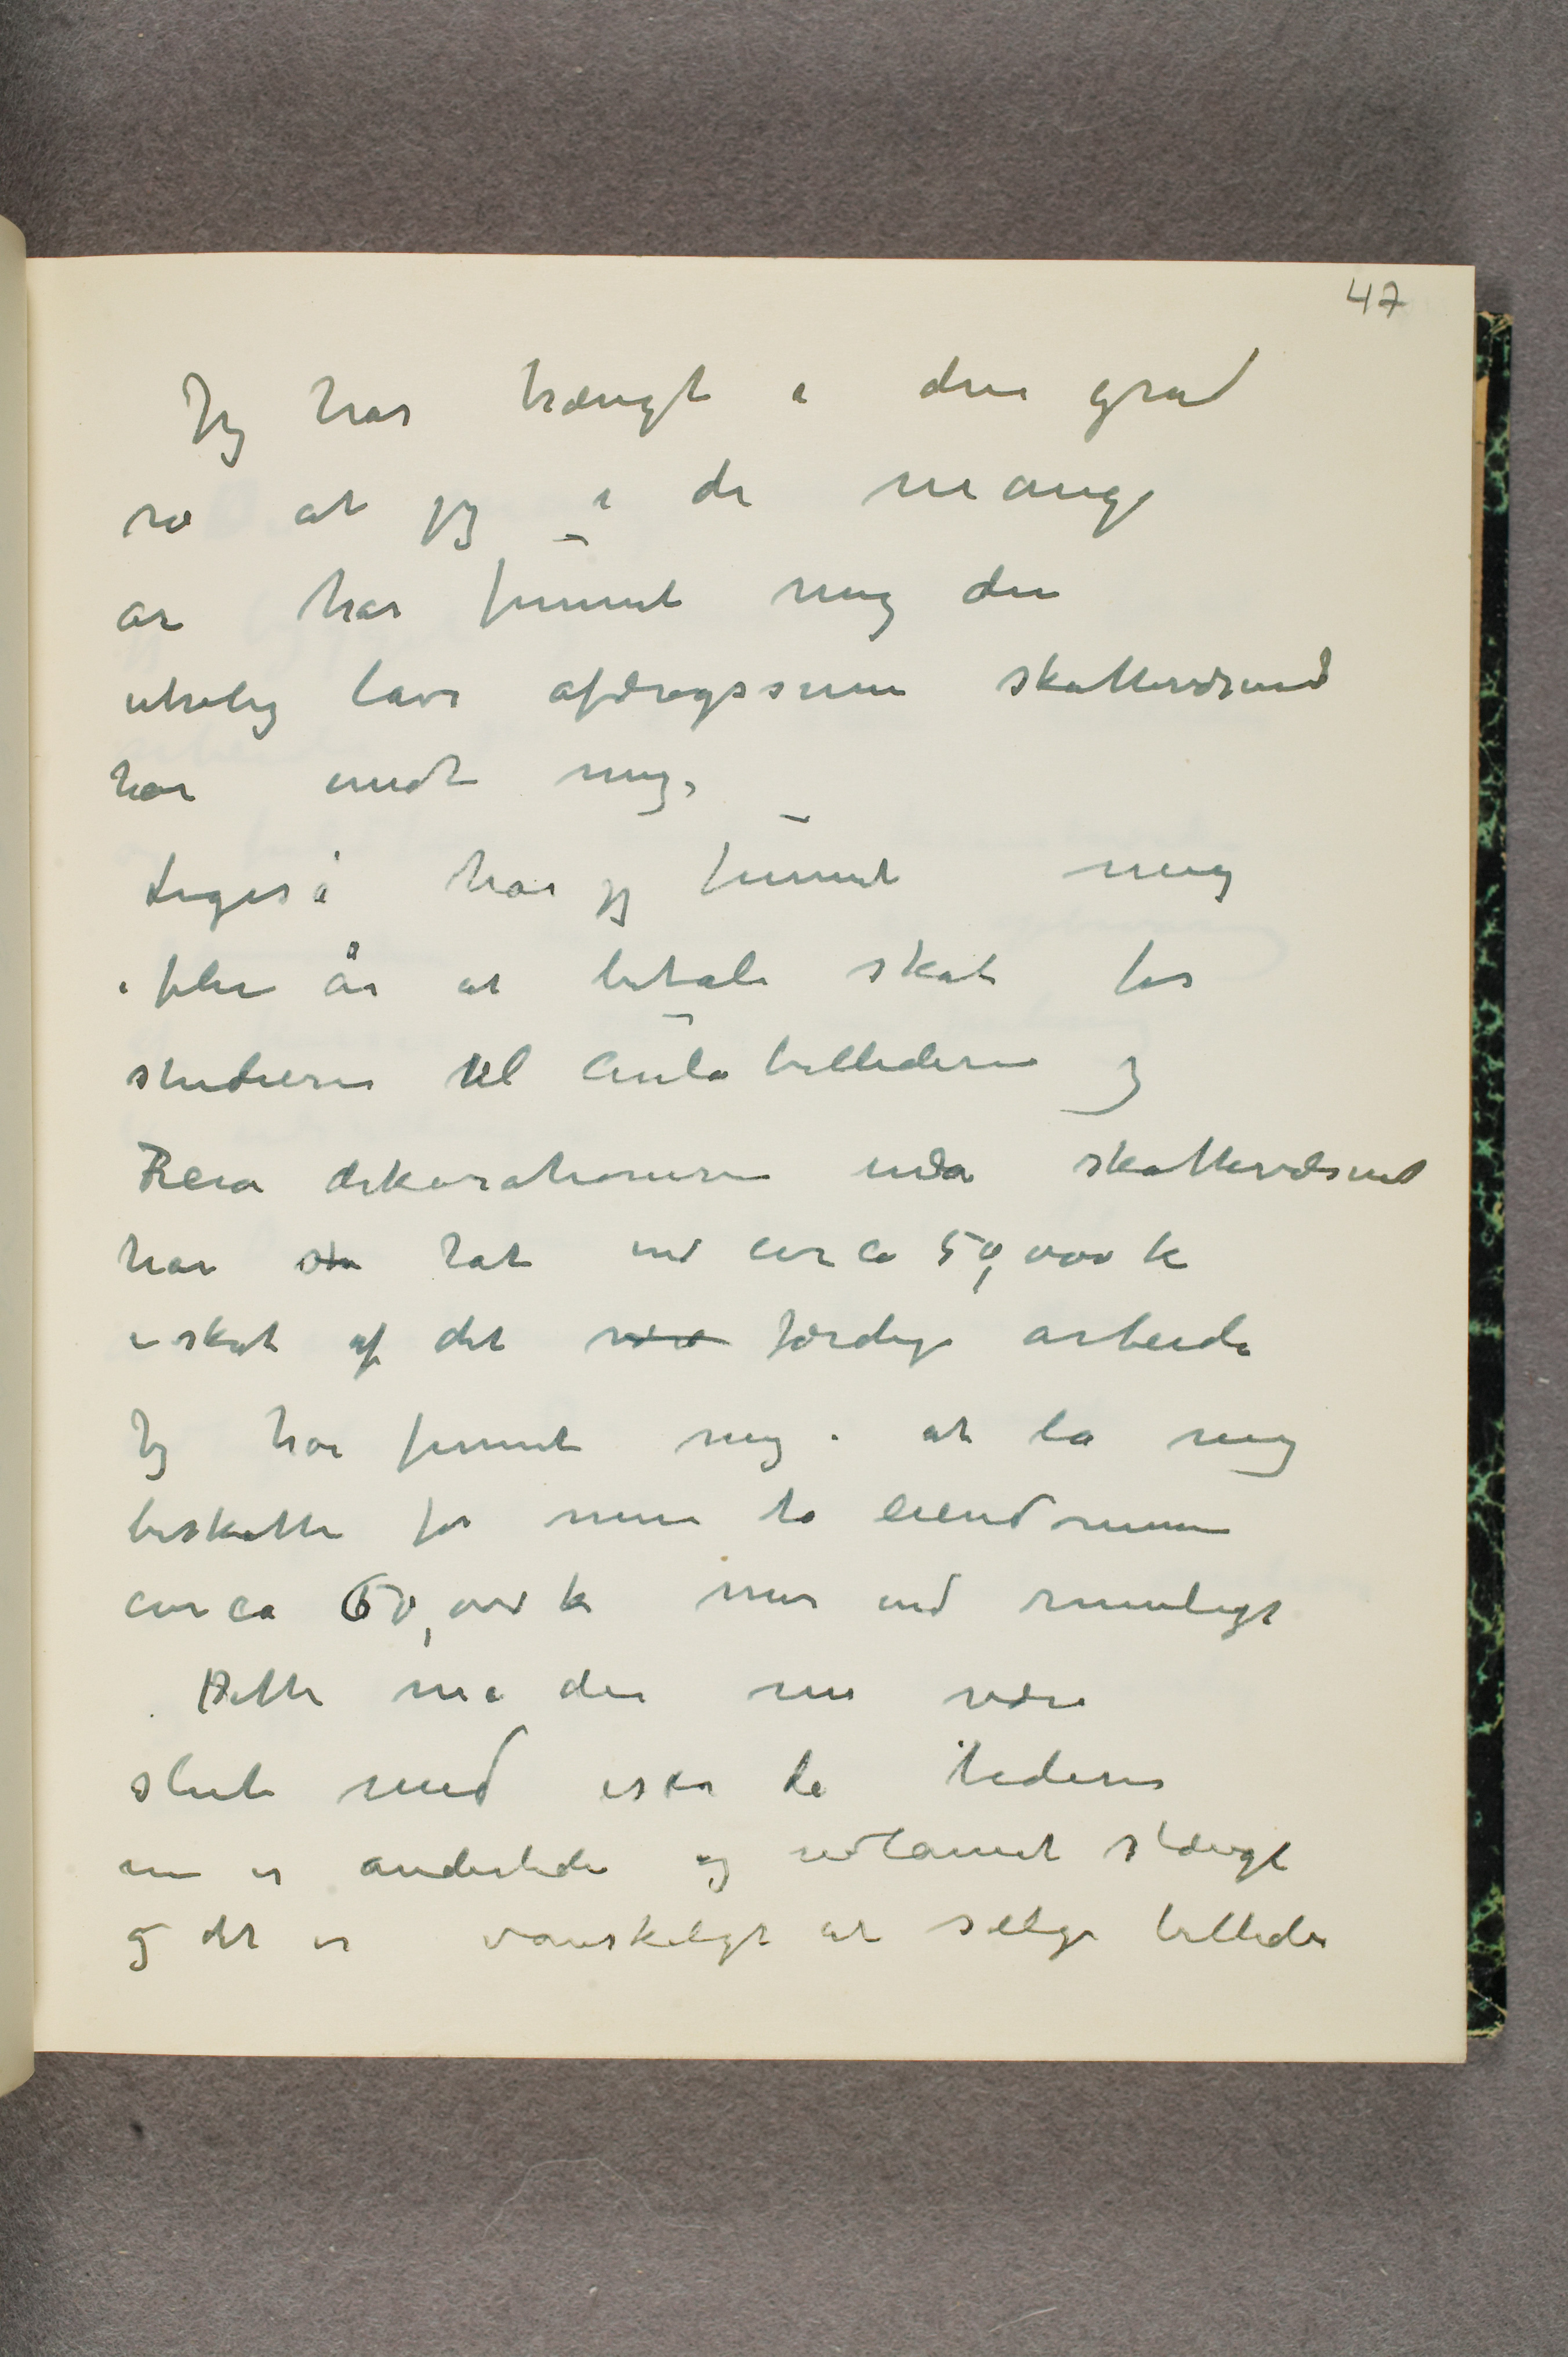 47
Jeg har trængt i den grad
ro at jeg i de mange
år har funnet mig den
utrolig lave afdragssum skattevæsned
har undt mig,
Ligeså har jeg funnet mig
i flere år at betale skat for
studierne til Aulabillederne og
Freia dekorationerne enda skattevæsnet
har sto tat ind circa 50,000 k
i skat af det være færdige arbeide
Jeg har funnet mig i at la mig
beskatte for mine to eiendomme
circa 60,000 k mer end rimeligt
Dette må der nu være
slut med især da tiderne
nu er anderledes og utlannet stængt
og det er vanskeligt at sælge billeder